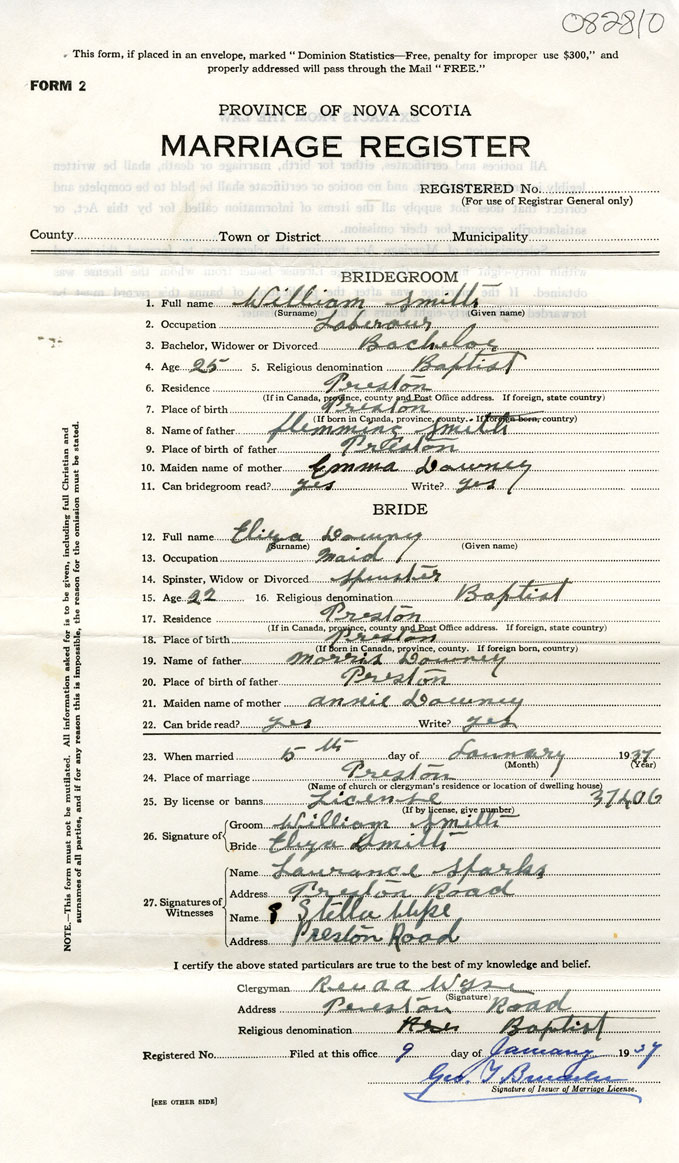 082810
This form, if placed in an envelope, marked "Dominion Statistics—Free, penalty for improper use $300," and
properly addressed will pass through the Mail "FREE."
FORM 2
PROVINCE OF NOVA SCOTIA
MARRIAGE REGISTER
REGISTERED No.
(For use of Registrar General only)
County Town or District Municipality
BRIDEGROOM
1. Full name William Smith
(Surname) (Given name)
2. Occupation Laberour
3. Bachelor, Widower or Divorced Bachelor
4. Age 25 5. Religious denomination Baptist
6. Residence Preston
(If in Canada, province, county and Post Office address. If foreign, state country)
7. Place of birth Preston
(If born in Canada, province, county. If foreign born, country)
8. Name of father flemming Smith
9. Place of birth of father Preston
10. Maiden name of mother Emma Downey
11. Can bridegroom read? yes Write? yes
BRIDE
12. Full name Eliza Downy
(Surname) (Given name)
13. Occupation maid
14. Spinster, Widow or Divorced Spinster
15. Age 22 16. Religious denomination Baptist
17. Residence Preston
(If in Canada, province, county and Post Office address. If foreign, state country)
18. Place of birth Preston
(If born in Canada, province, county. If foreign born, country)
19. Name of father Morris Downey
20. Place of birth of father Preston
21. Maiden name of mother annie Downey
22. Can bride read? yes Write? yes
23. When married 5th day of January 1937
(Month) (Year)
24. Place of marriage Preston
(Name of church or clergyman's residence or location of dwelling house)
25. By license or banns License 37406
(If by license, give number)
26. Signature of Groom William Smith
Bride Eliza Smith
27. Signatures of Witnesses
Name Laurance Sparks
Address Preston Road
Name Stella Wyse
Address Preston Road
I certify the above stated particulars are true to the best of my knowledge and belief.
Clergyman Wyse
(Signature)
Address Preston Road
Religious denomination Baptist
Registered No. Filed at this office 9 day of January 1937
Geo. T
Signature of Issuer of Marriage License.
[SEE OTHER SIDE]
NOTE.—This form must not be mutilated. All information asked for is to be given, including full Christian and
surnames of all parties, and if for any reason this is impossible, the reason for the omission must be stated.